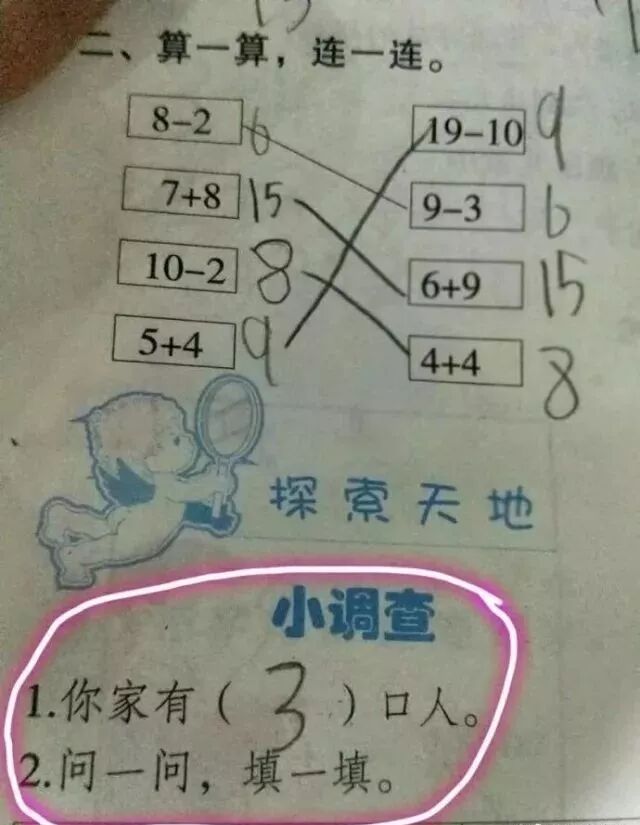 二、算一算，连一连。
8-2 6 19-10 9
7+8 15 9-3 6
10-2 8 6+9 15
5+4 9 4+4 8
探索天地
小调查
1.你家有（ 3 ）口人。
2.问一问，填一填。